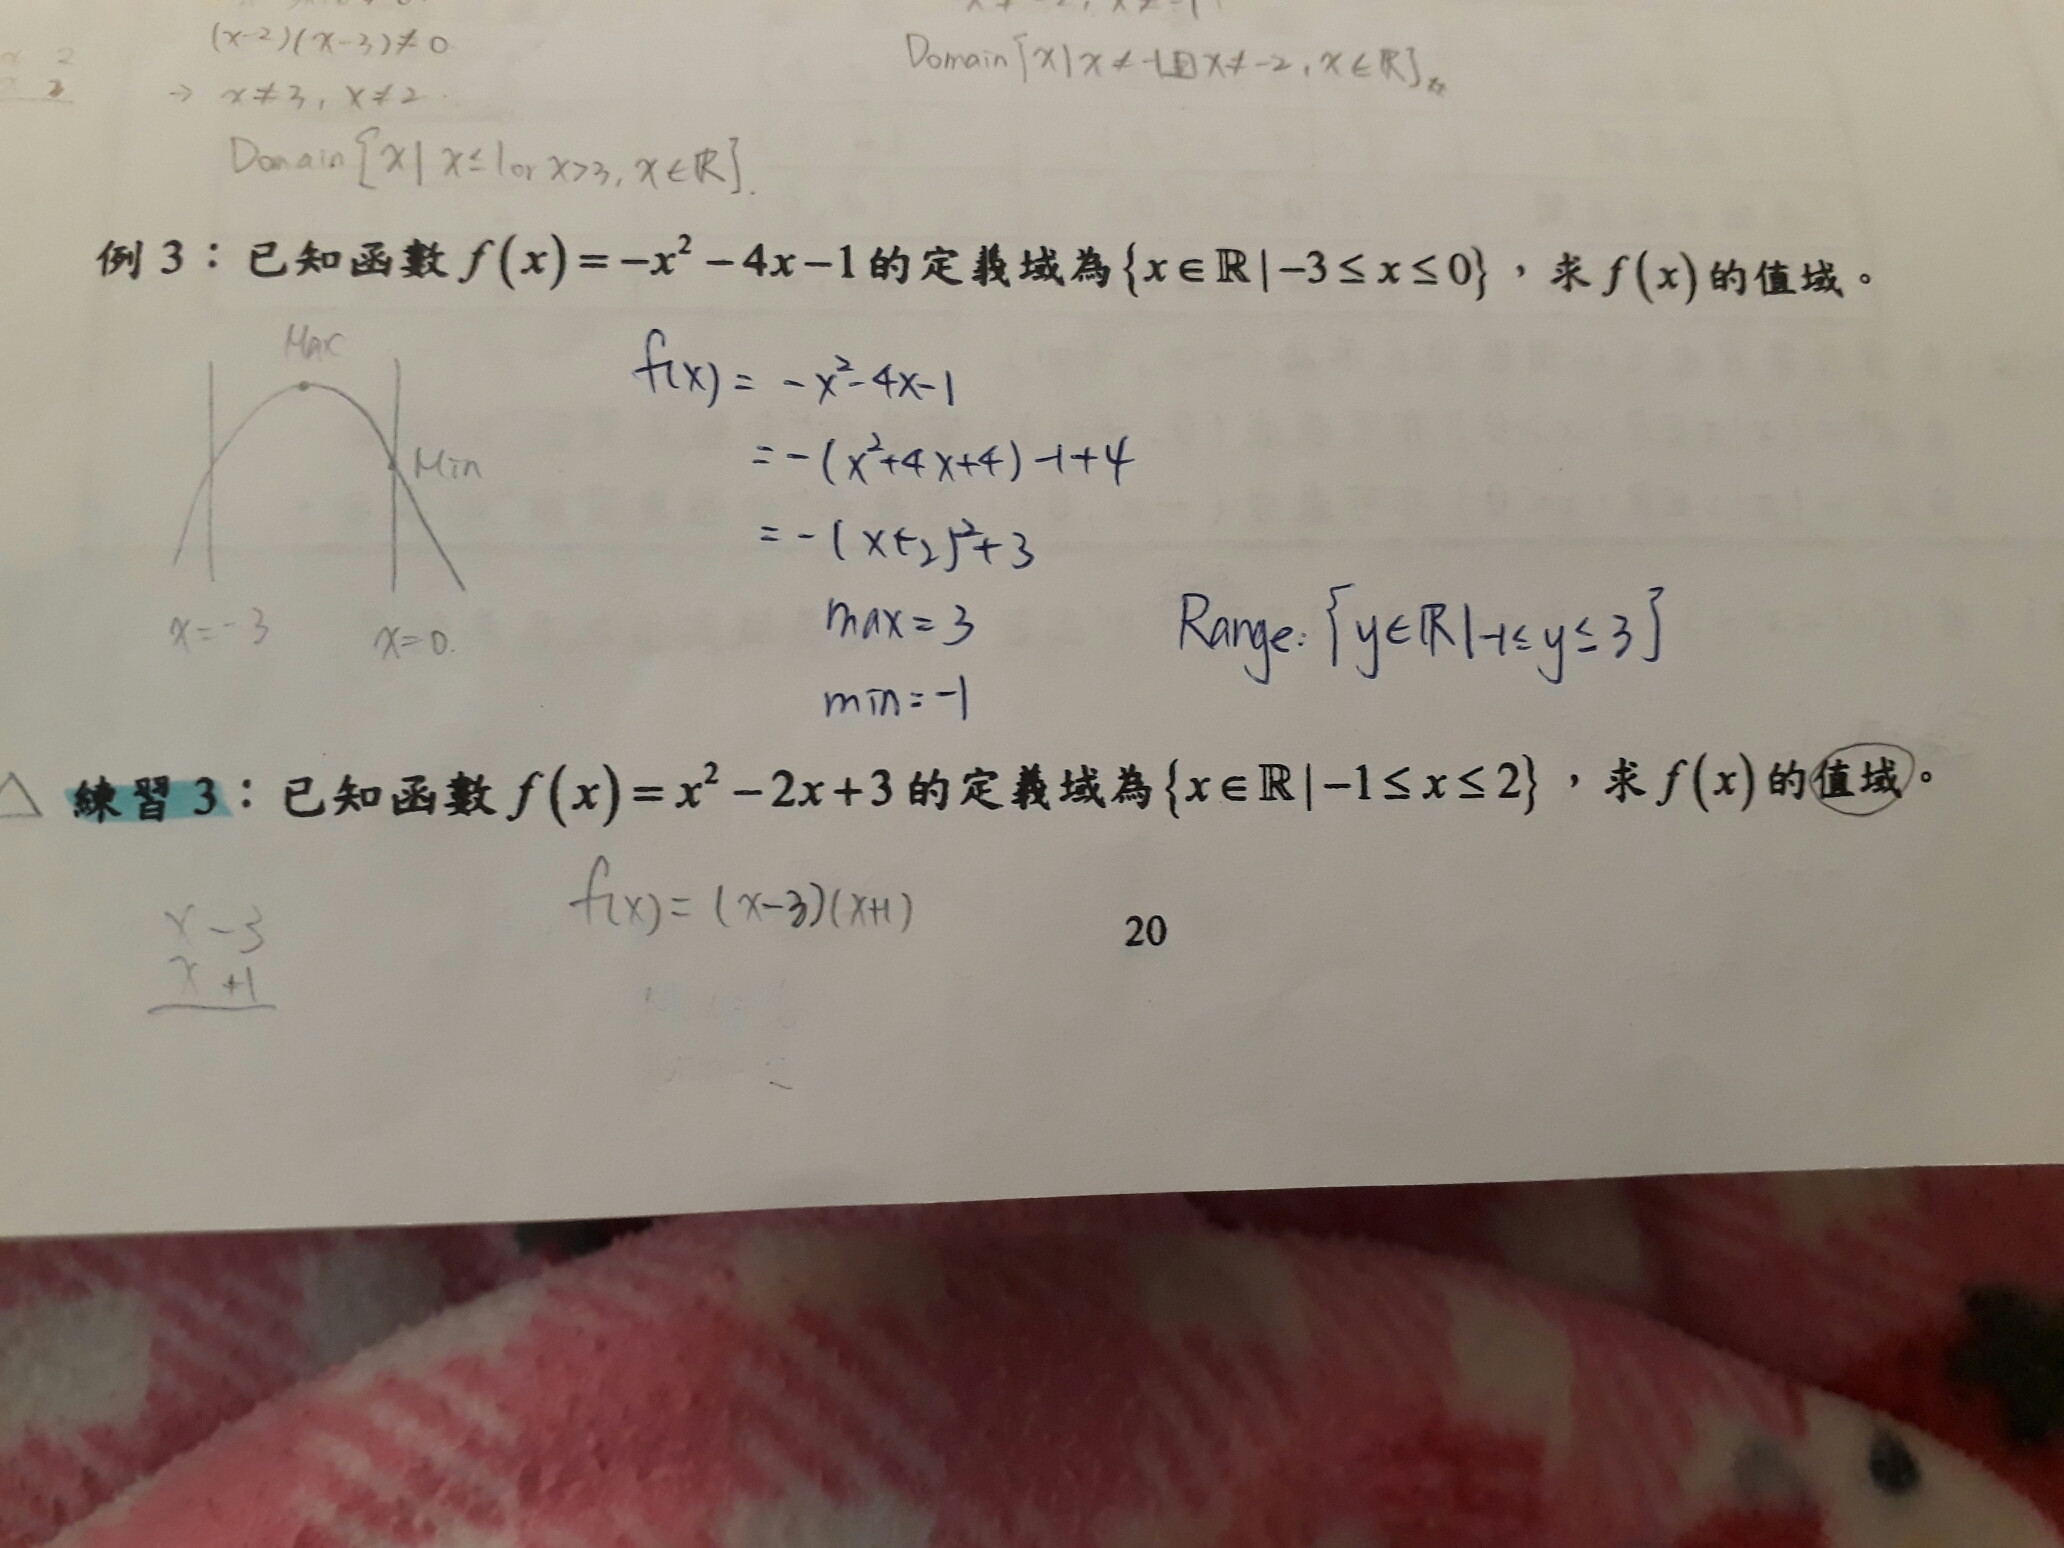 (x-2)(x-3)≠0
→ x≠3, x≠2.
Domain{x|x≤1 or x>3, x∈ℝ}.
Domain{x|x≠-1 x≠-2, x∈ℝ}
例 3：已知函數 f(x)=-x²-4x-1 的定義域為{x∈ℝ|-3≤x≤0}，求 f(x) 的值域。
Max
Min
x=-3
x=0.
f(x)=-x²-4x-1
=-(x²+4x+4)-1+4
=-(x+2)²+3
max=3
min=-1
Range: {y∈ℝ|-1≤y≤3}
△ 練習 3：已知函數 f(x)=x²-2x+3 的定義域為{x∈ℝ|-1≤x≤2}，求 f(x) 的值域。
x -3
x +1
f(x)=(x-3)(x+1)
20